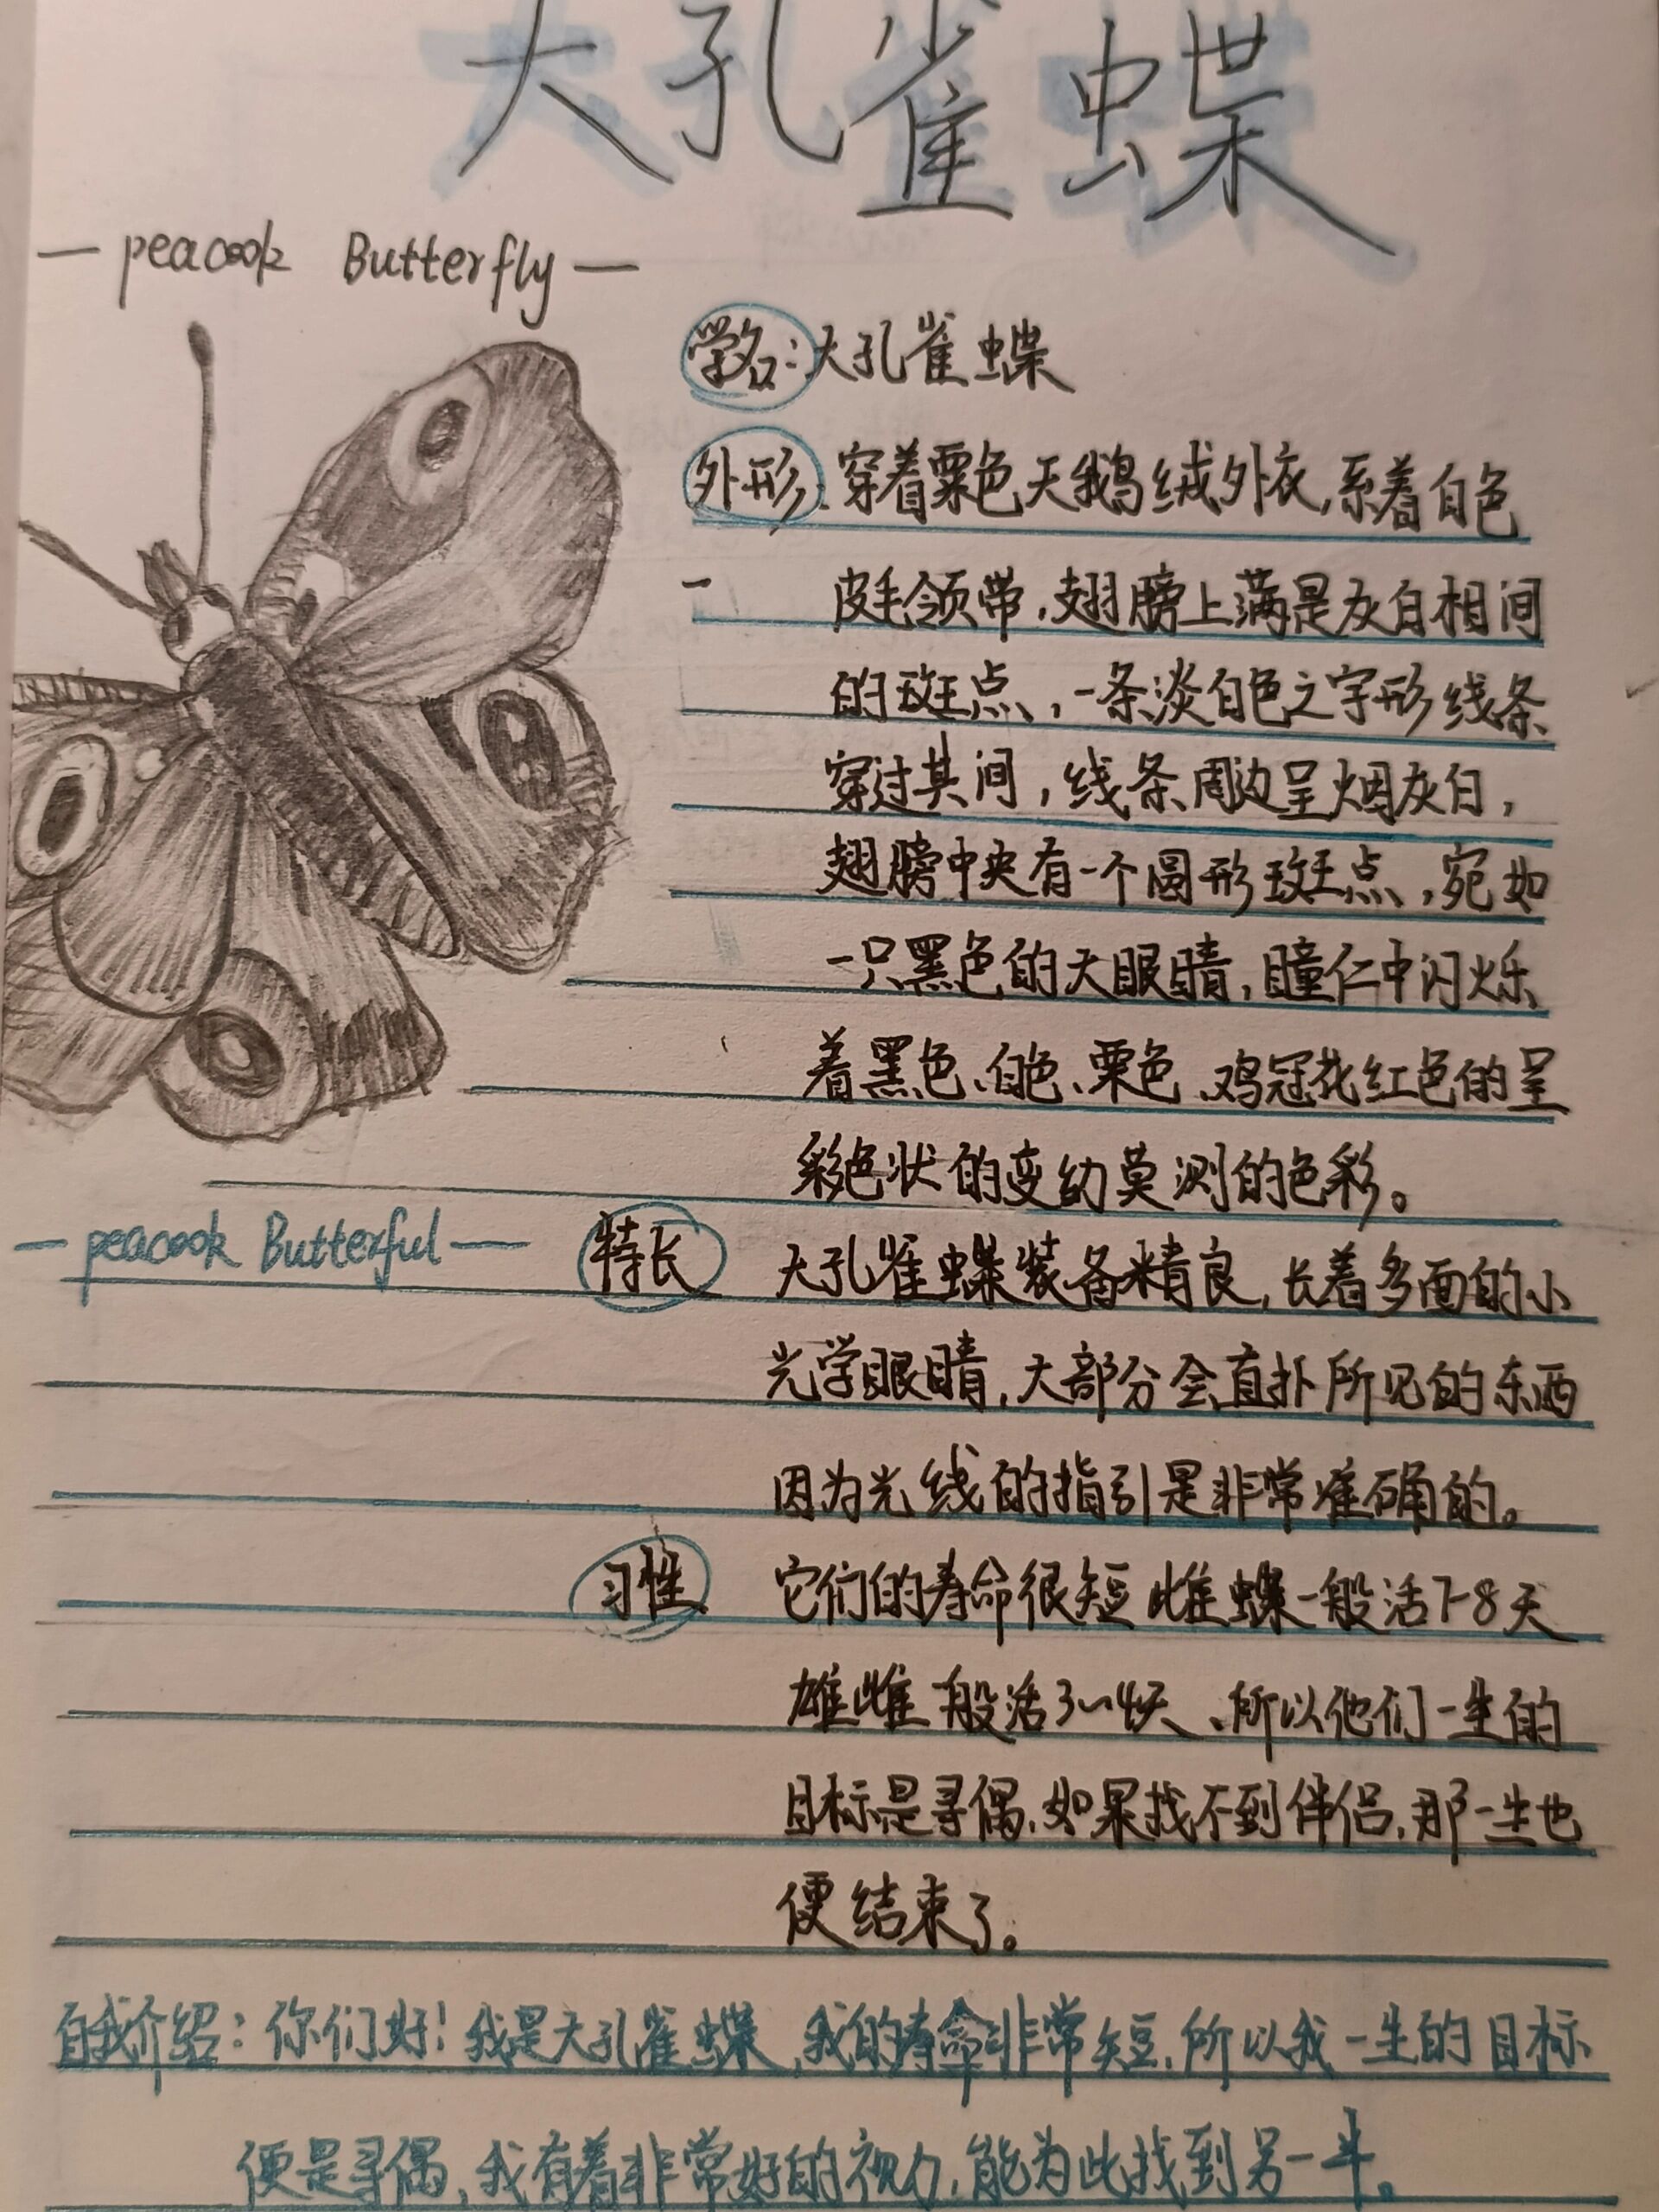 大孔雀蝶
— peacook Butterfly —
学名：大孔雀蝶
外形：穿着栗色天鹅绒外衣，系着白色
皮毛领带，翅膀上满是灰白相间
的斑点，一条淡白色之字形线条
穿过其间，线条周边呈烟灰白，
翅膀中央有一个圆形斑点，宛如
一只黑色的大眼睛，瞳仁中闪烁
着黑色、白色、栗色、鸡冠花红色的呈
彩色状的变幼莫测的色彩。
— peacook Butterful —
特长 大孔雀蝶装备精良，长着多面的小
光学眼睛，大部分会直扑所见的东西
因为光线的指引是非常准确的。
习性 它们的寿命很短 雌蝶一般活7-8天
雄雌一般活3～4天、所以他们一生的
目标是寻偶，如果找不到伴侣，那一生也
便结束了。
自我介绍：你们好！我是大孔雀蝶，我的寿命非常短，所以我一生的目标
便是寻偶，我有着非常好的视力，能为此找到另一半。